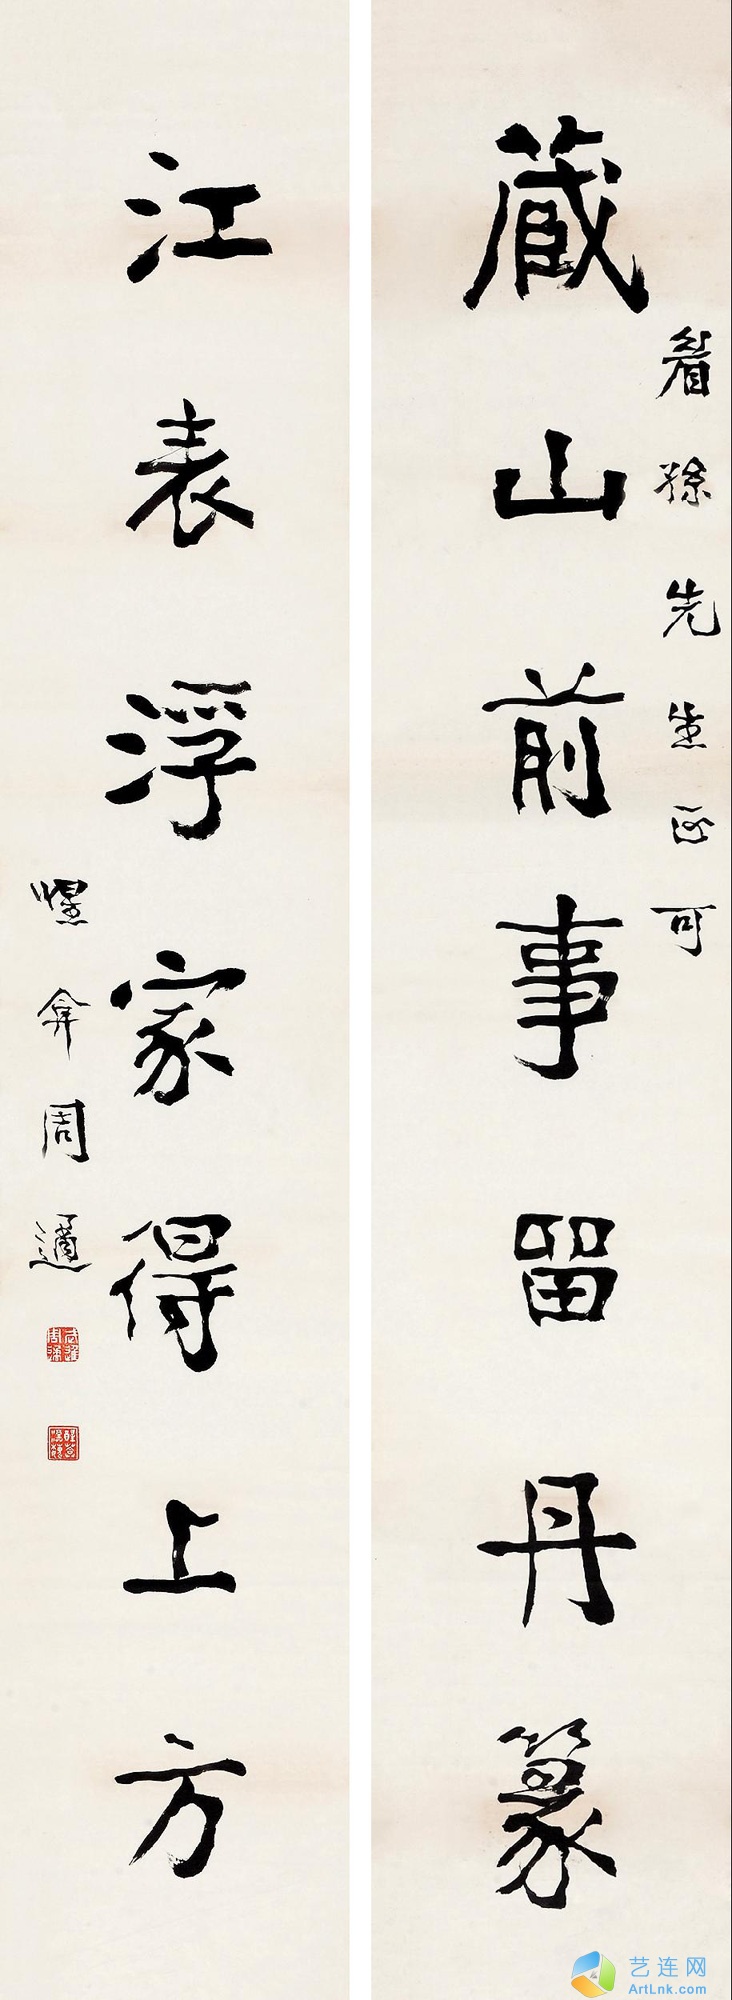 藏山前事留丹篆
孫先生正可
江表浮家得上方
惺弇周遹
艺连网
ArtLnk.com